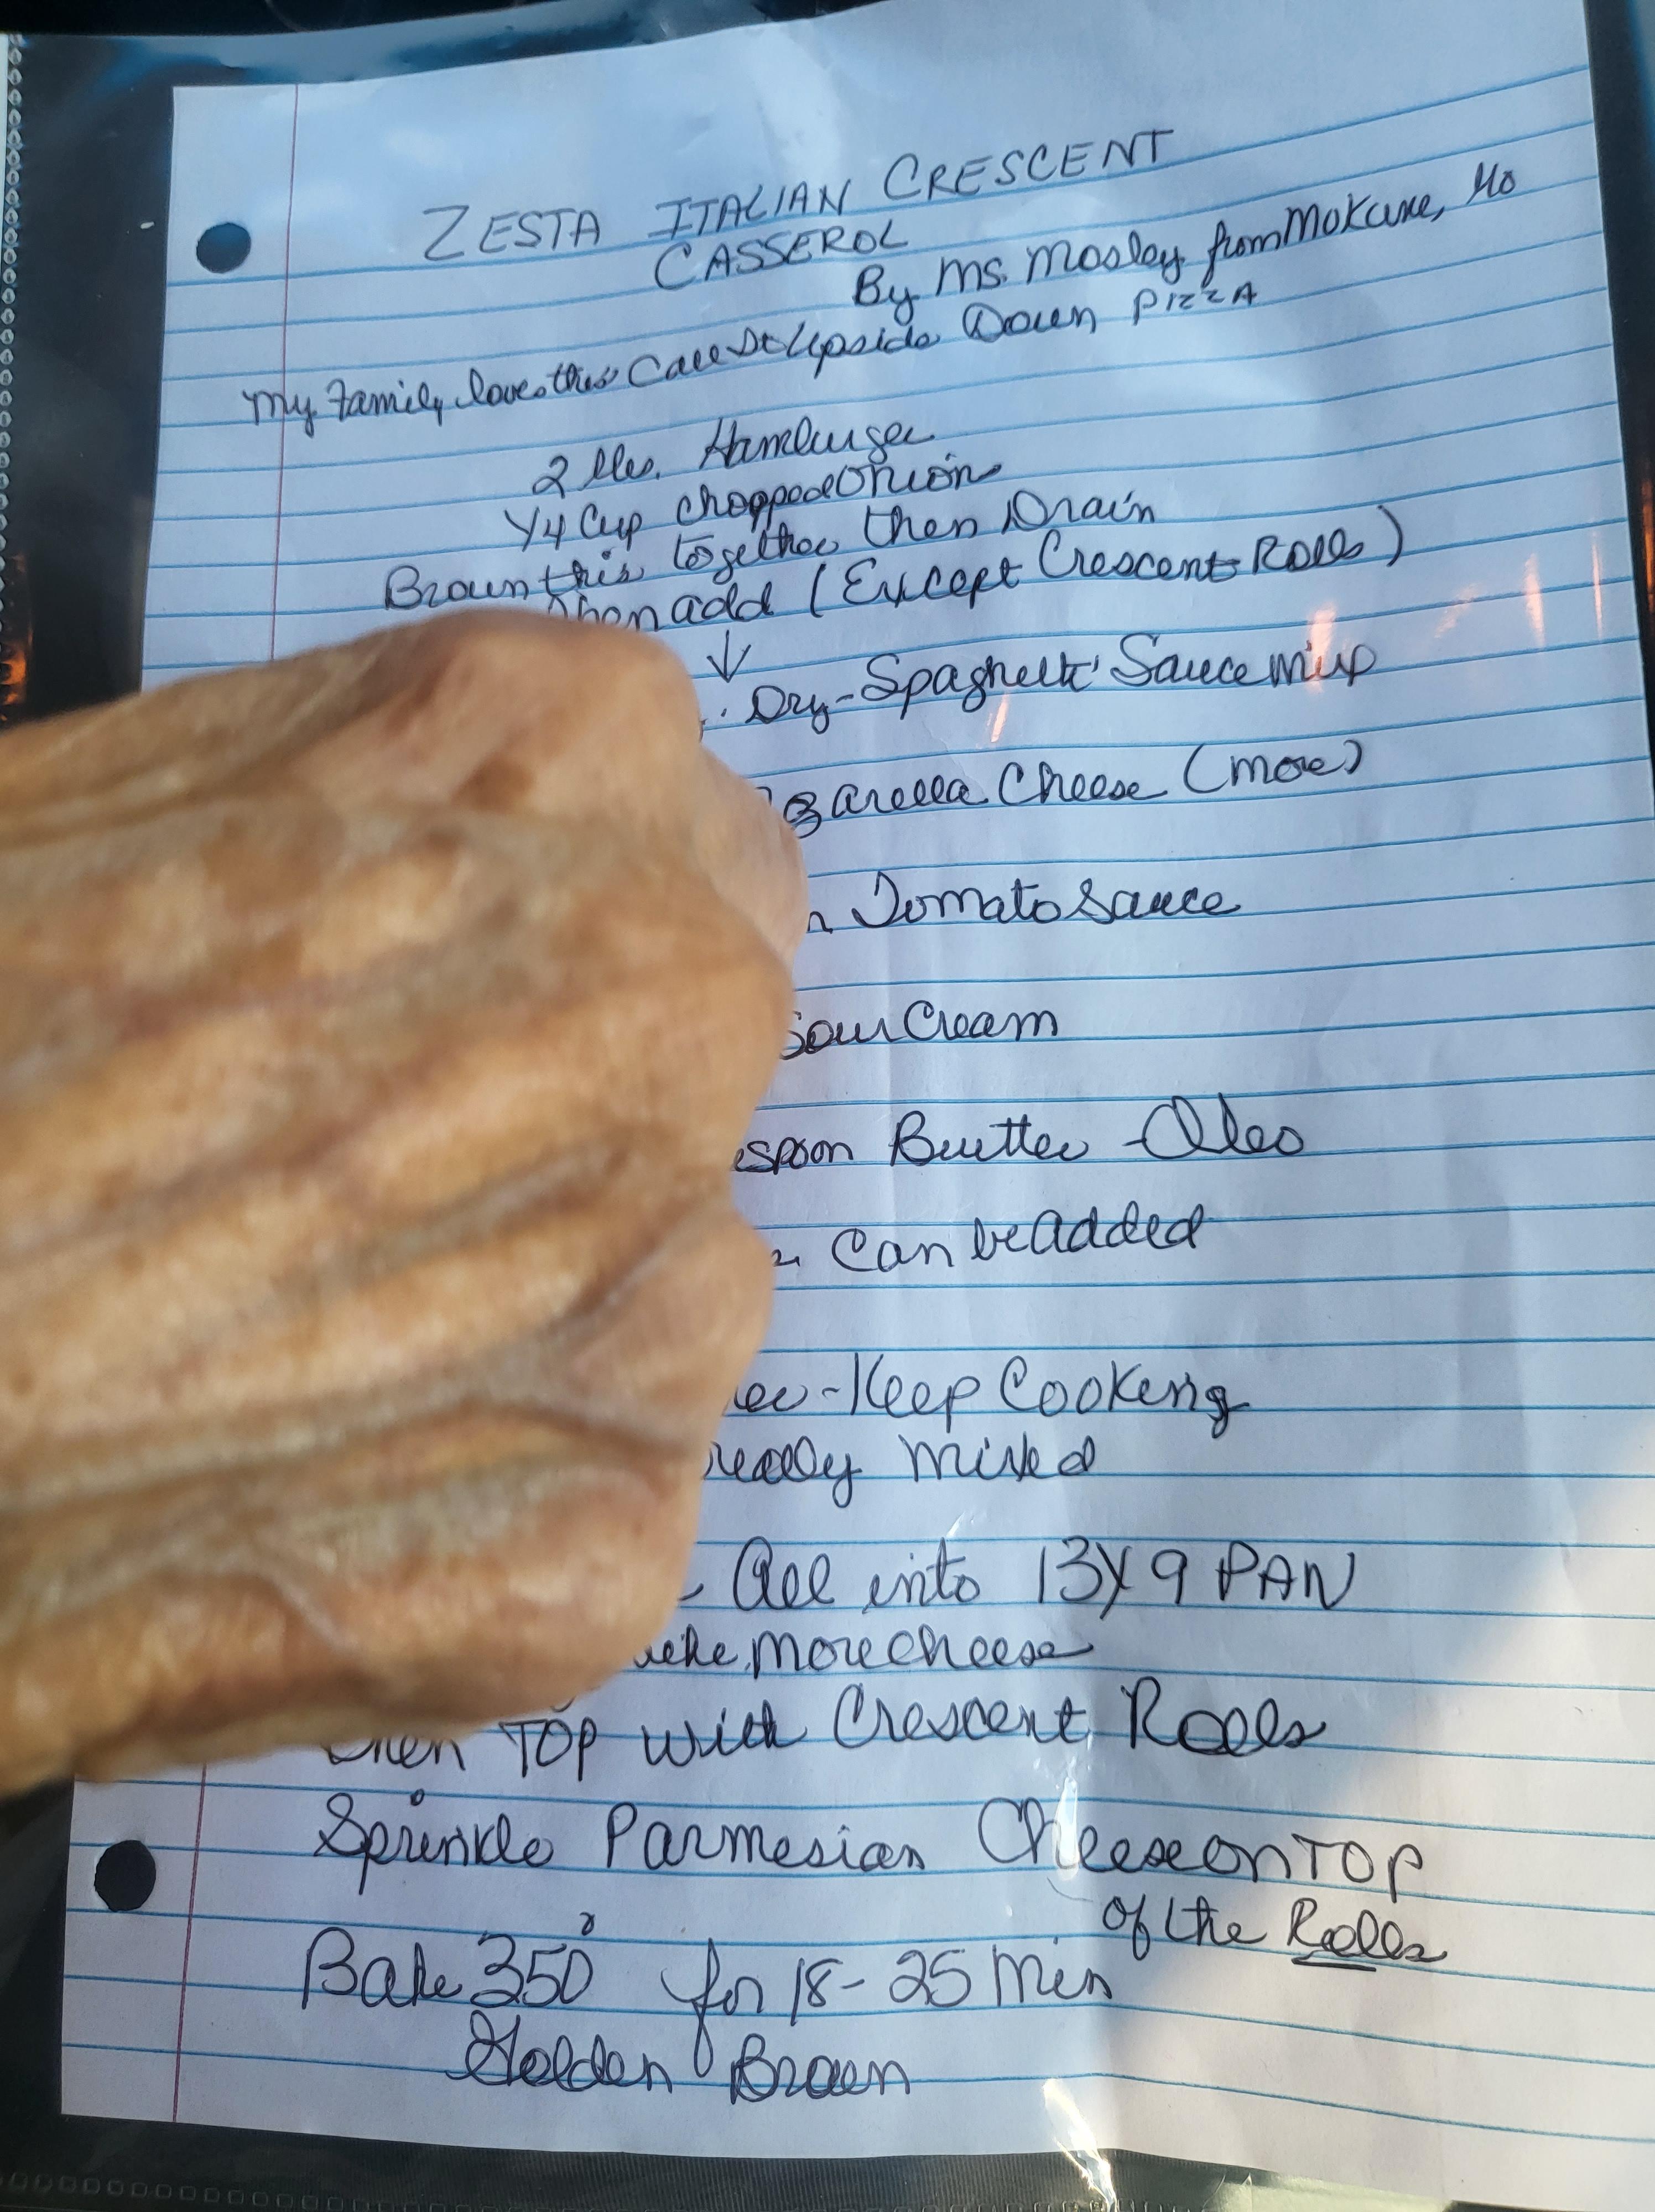 ZESTA ITALIAN CRESCENT
CASSEROL
By Ms. Mosley from Mokane, Mo
My Family loves this Call It Upside Down PIZZA
2 lbs. Hamburger
1/4 Cup chopped Onion
Brown this together then Drain
then add (Except Crescent Rolls)
↓
Dry-Spaghetti Sauce Mix
Cheese (more)
Tomato Sauce
Sour Cream
Butter-Oleo
Can be Added
-Keep Cooking
Mixed
All into 13x9 PAN
More cheese
then TOP with Crescent Rolls
Sprinkle Parmesian Cheese on TOP
of the Rolls
Bake 350° for 18-25 Min
Golden Brown